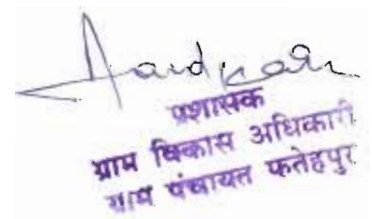 प्रशासक
ग्राम विकास अधिकारी
ग्राम पंचायत फतेहपुर